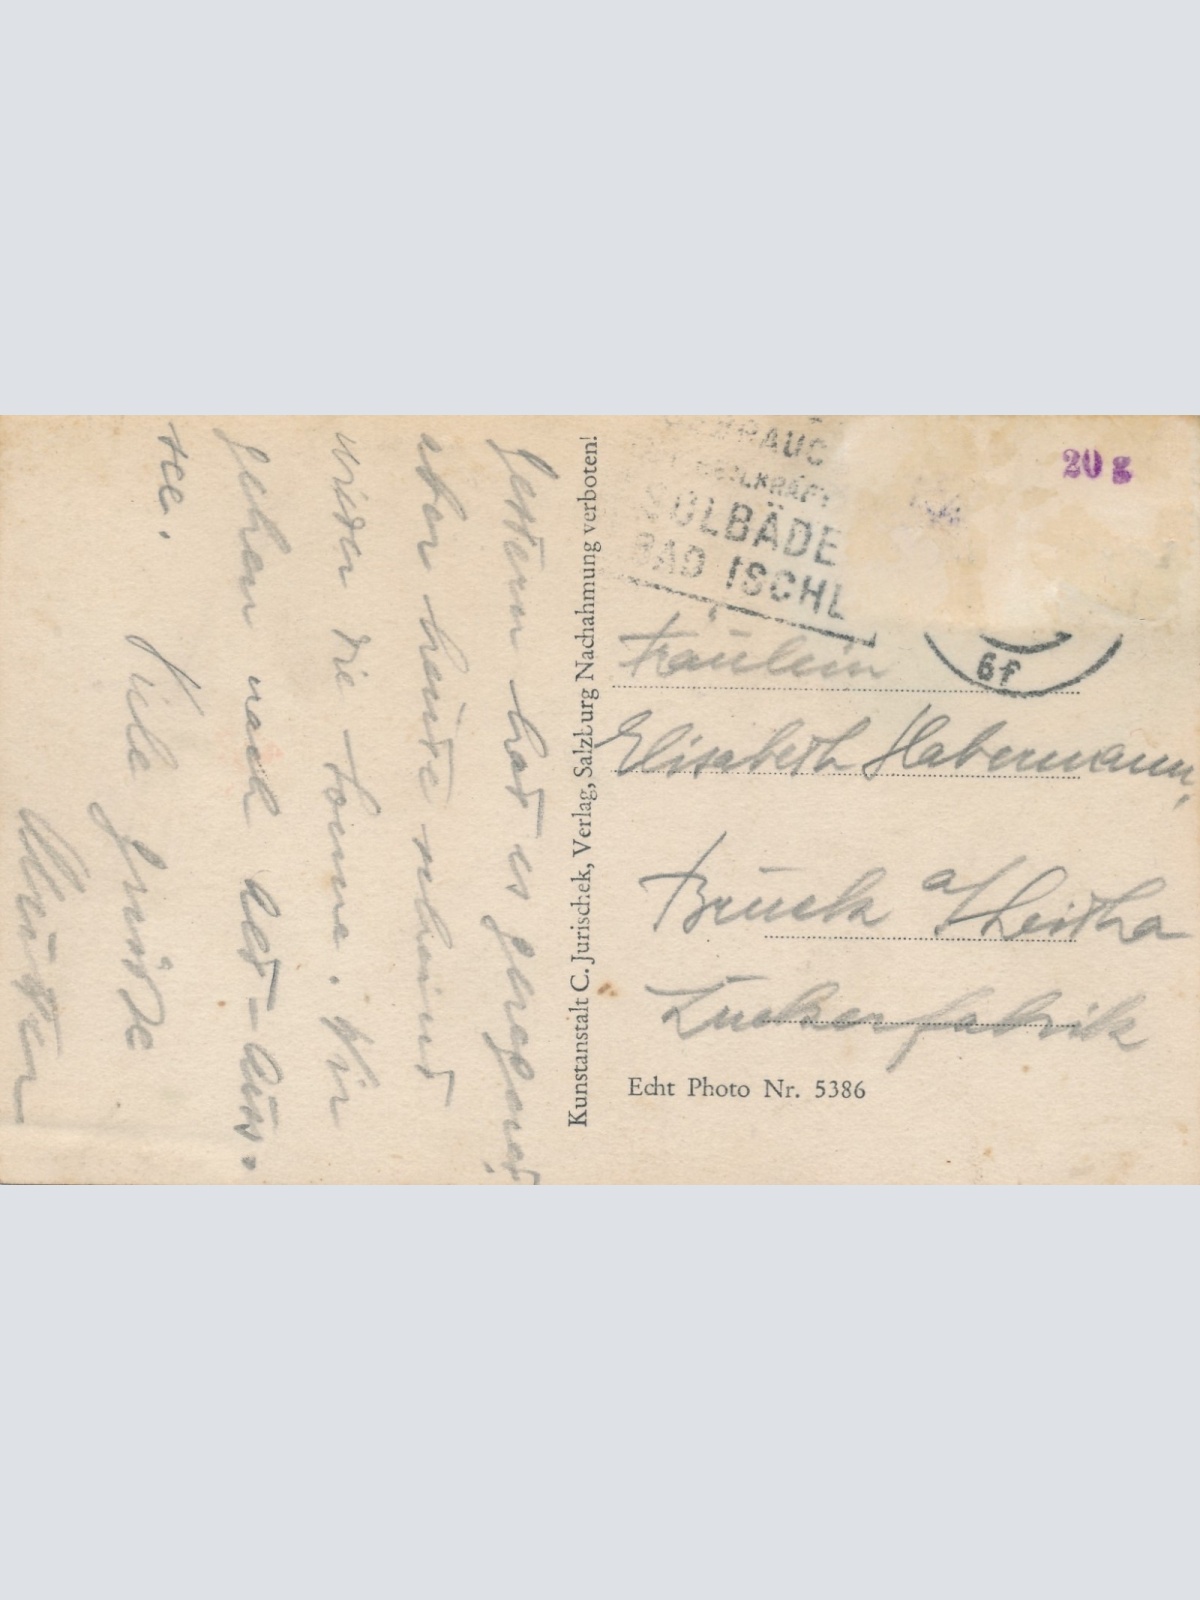 Gestern hat es geregnet,
aber heute scheint
wieder die Sonne. Wir
gehen nach Alt-Aus-
see.
Viele Grüße
Kunstanstalt C. Jurischek, Verlag, Salzburg Nachahmung verboten!
SOLBÄDE
BAD ISCHL
20 g
6f
Fräulein
Elisabeth Habermann,
Bruck a/Leitha
Zuckerfabrik
Echt Photo Nr. 5386